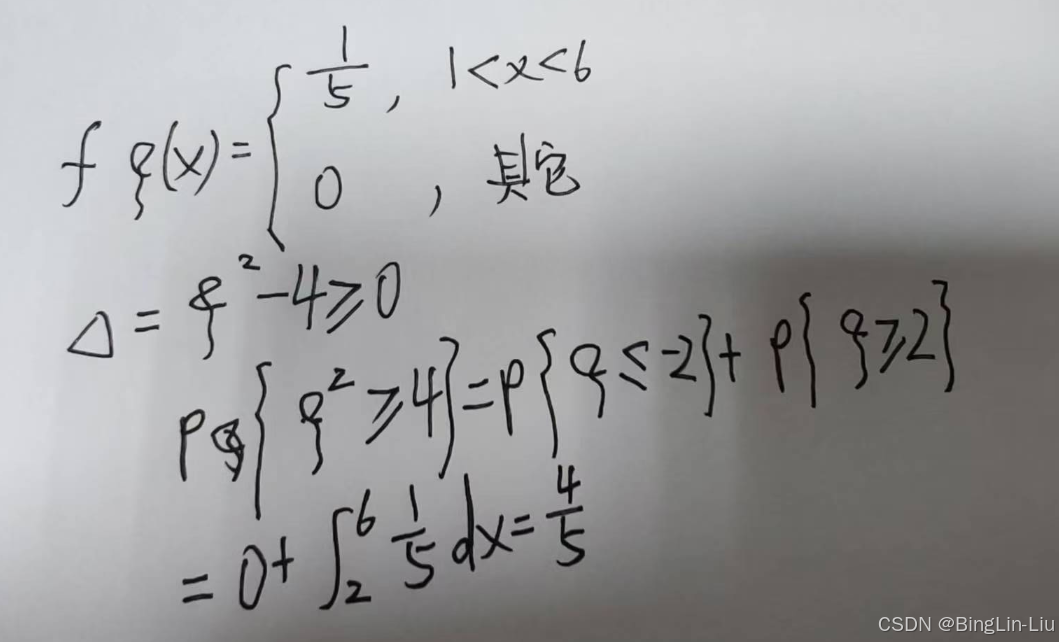 fξ(x) = { 1/5, 1<x<6
0, 其它
Δ = ξ² - 4 ≥ 0
P{ξ² ≥ 4} = P{ξ ≤ -2} + P{ξ ≥ 2}
= 0 + ∫₂⁶ 1/5 dx = 4/5
CSDN @BingLin-Liu